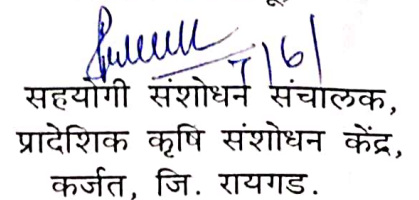 7/6/
सहयोगी संशोधन संचालक,
प्रादेशिक कृषि संशोधन केंद्र,
कर्जत, जि. रायगड.